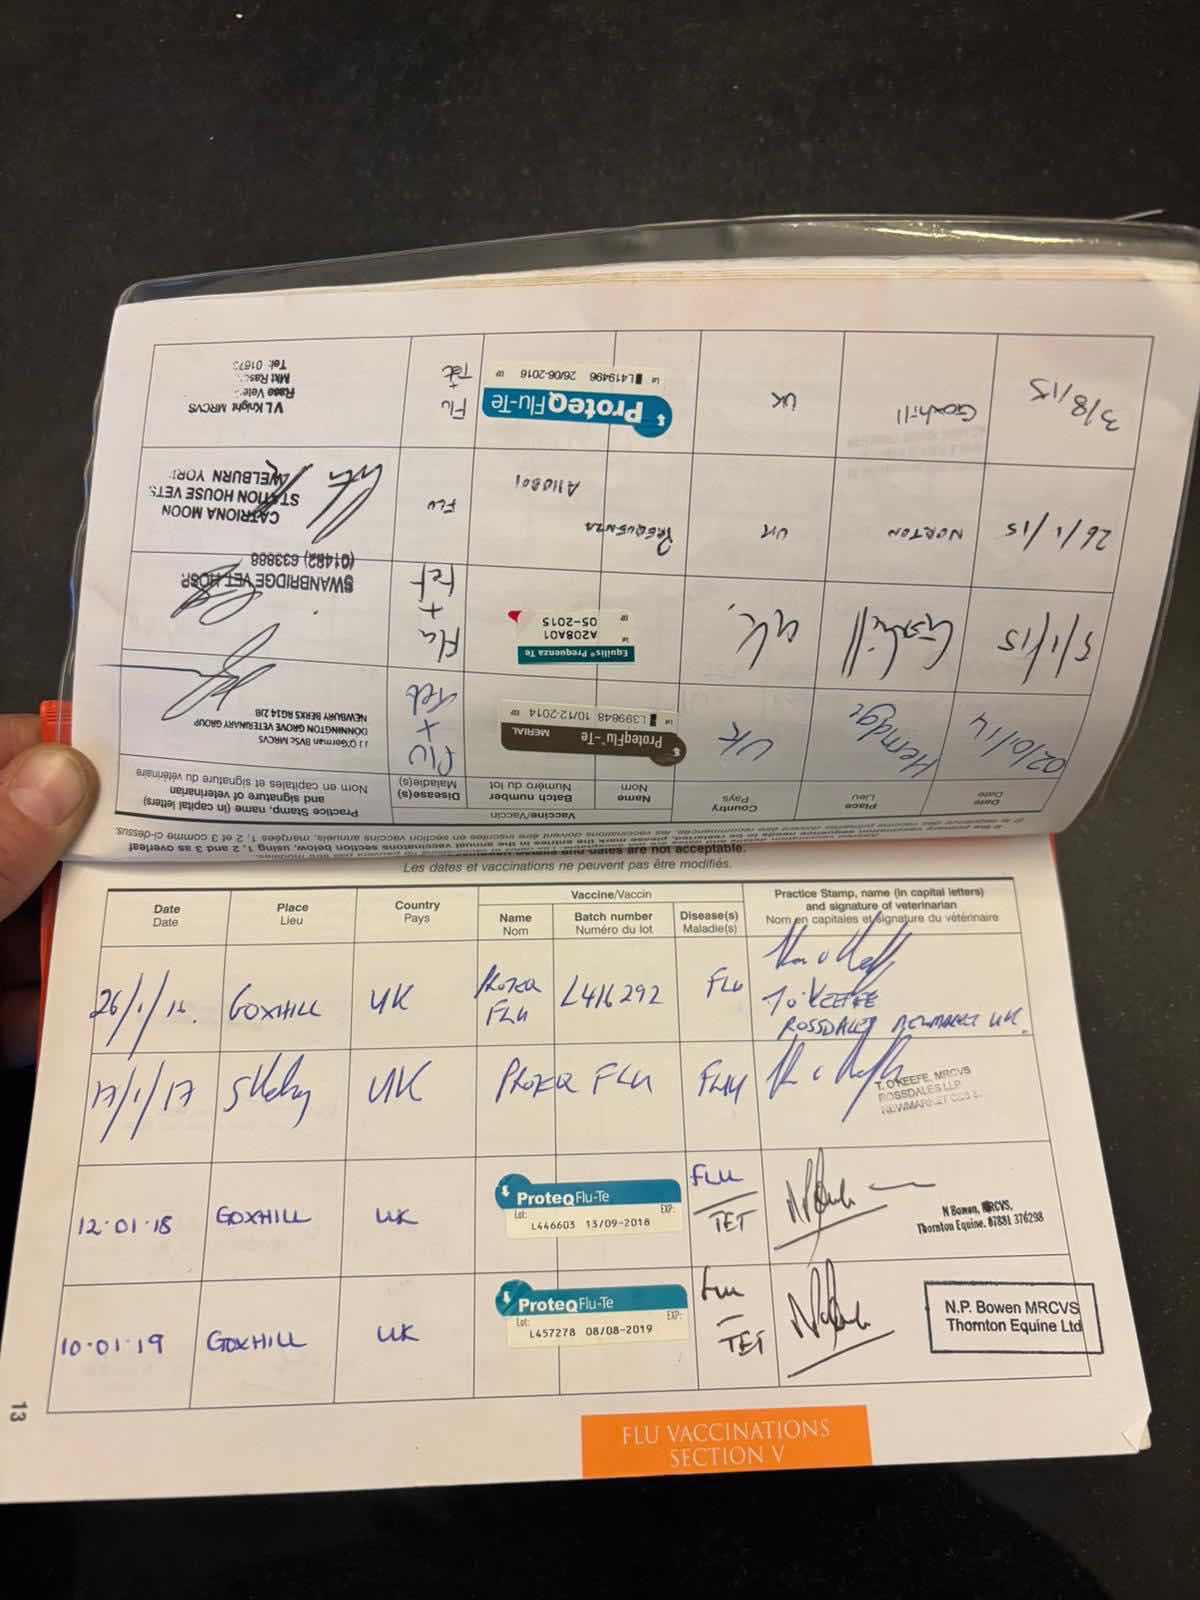 If the primary vaccination sequence needs to be restarted, please mark the entries in the annual vaccinations section below, using 1, 2 and 3 as overleaf
Si la séquence des vaccins primaires doit être recommencée, les vaccinations doivent être inscrites en section vaccins annuels, marquées 1, 2 et 3 comme ci-dessus.
Date
Date
Place
Lieu
Country
Pays
Vaccine/Vaccin
Name
Nom
Batch number
Numéro du lot
Disease(s)
Maladie(s)
Practice Stamp, name (in capital letters)
and signature of veterinarian
Nom en capitales et signature du vétérinaire
UK
ProteqFlu™-Te
MERIAL
Lot L399848 10/12-2014 EXP
Flu
+
Tet
J J O'Gorman BVSc MRCVS
DONNINGTON GROVE VETERINARY GROUP
NEWBURY BERKS RG14 2JB
5/1/15
Goxhill
UK.
Equilis® Prequenza Te
Lot A208A01
EXP 05-2015
Flu
+
Tet
SWANBRIDGE VET HOSP
(01482) 633868
26/1/15
NORTON
UK
PREQUENZA
A110B01
FLU
CATRIONA MOON
STATION HOUSE VETS
WELBURN YORK
3/8/15
Goxhill
UK
ProteqFlu-Te
Lot L419496 26/06-2016 EXP
Flu
+
Tet
V L Knight MRCVS
Rase Vete
Mkt Ras
Tel: 01673
dates are not acceptable.
Les dates et vaccinations ne peuvent pas être modifiés.
Date
Date
Place
Lieu
Country
Pays
Vaccine/Vaccin
Name
Nom
Batch number
Numéro du lot
Disease(s)
Maladie(s)
Practice Stamp, name (in capital letters)
and signature of veterinarian
Nom en capitales et signature du vétérinaire
26/1/16.
GOXHILL
UK
PROTEQ
FLU
L416292
FLU
T O'KEEFFE
ROSSDALES NEWMARKET UK.
17/1/17
UK
PROTEQ FLU
FLU
T. O'KEEFE, MRCVS
ROSSDALES LLP
NEWMARKET CB8
12.01.18
GOXHILL
UK
ProteqFlu-Te
Lot: EXP:
L446603 13/09-2018
FLU
TET
N Bowen, MRCVS,
Thornton Equine. 07881 376298
10.01.19
GOXHILL
UK
ProteqFlu-Te
Lot: EXP:
L457278 08/08-2019
FLU
TET
N.P. Bowen MRCVS
Thornton Equine Ltd
13
FLU VACCINATIONS
SECTION V